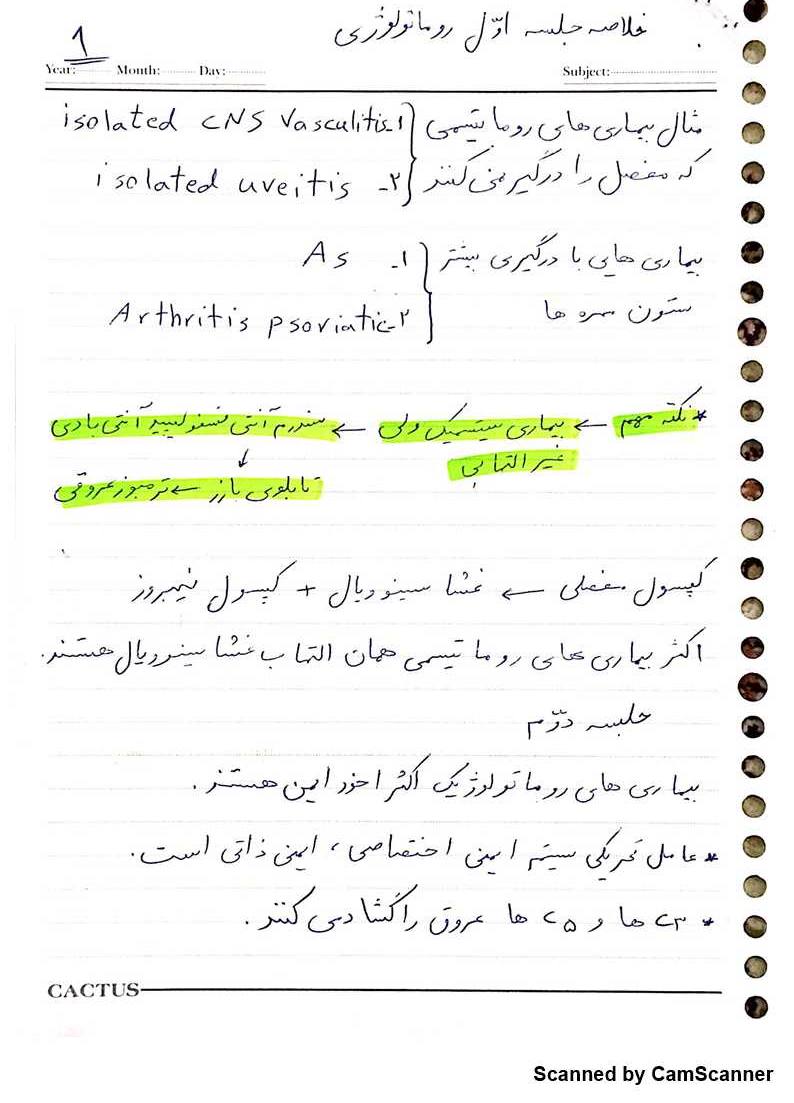 خلاصه جلسه اوّل روماتولوژی
۱
Year: Month: Day: Subject:
مثال بیماری های روماتیسمی ۱- isolated CNS Vasculitis
که مفصل را درگیر نمی کنند ۲- isolated uveitis
بیماری هایی با درگیری بیشتر ۱- As
ستون مهره ها ۲- Arthritis psoriatic
* نکته مهم ← بیماری سیستمیک ولی ← سندرم آنتی فسفولیپید آنتی بادی
غیر التهابی ↓
تابلوی بارز ← ترمبوز عروقی
کپسول مفصلی ← غشا سینوویال + کپسول فیبروز
اکثر بیماری های روماتیسمی همان التهاب غشا سینوویال هستند.
جلسه دوّم
بیماری های روماتولوژیک اکثرا خود ایمن هستند.
* عامل تحریکی سیستم ایمنی اختصاصی، ایمنی ذاتی است.
* C۳ ها و C۵ ها عروق را گشاد می کنند.
CACTUS
Scanned by CamScanner